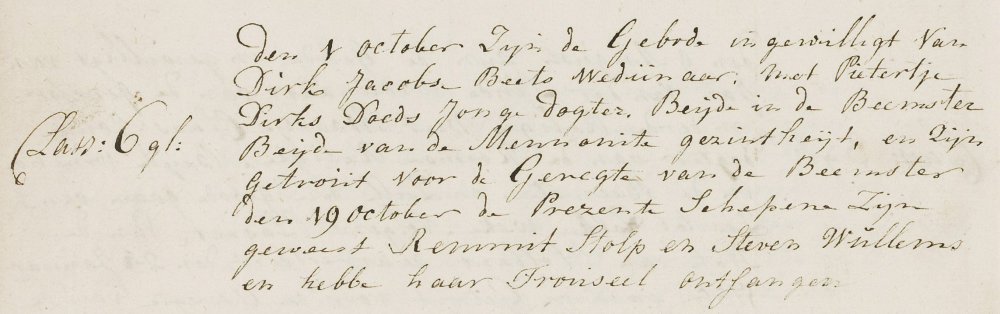 Den 1 October Zijn de Gebode ingewilligt van
Dirk Jacobsz Beets Weduinaar, met Pietertje
Dirks Doeds Jonge dogter, Beijde in de Beemster
Class: 6 gl:
Beijde van de Mennonite gezintheijt, en Zijn
getrout voor de Geregte van de Beemster
den 19 October de Prezente Schepene Zijn
geweest Remmit Stolp en Steven Willems
en hebbe haar Trouseel ontfangen